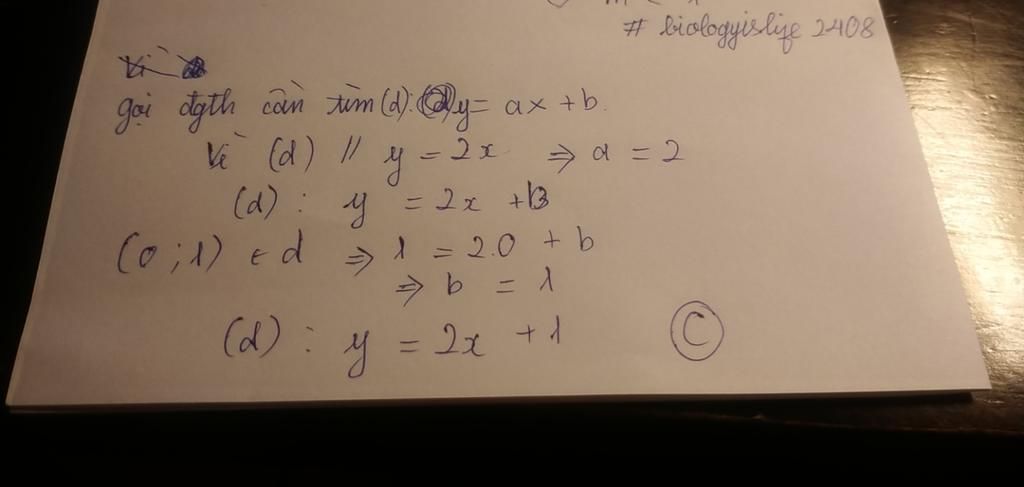 # biologyislife 2408
Vì
gọi đgth cần tìm (d): y = ax + b.
Vì (d) // y = 2x ⇒ a = 2
(d) : y = 2x + b
(0 ; 1) ∈ d ⇒ 1 = 2.0 + b
⇒ b = 1
(d) : y = 2x + 1 C